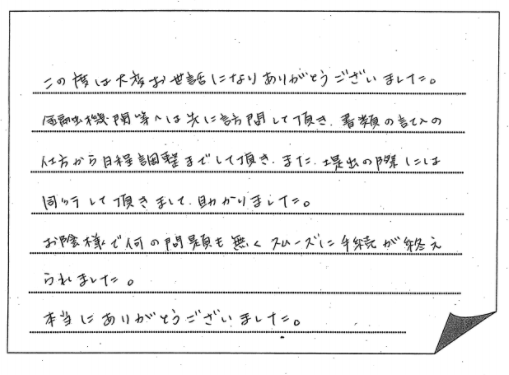 この度は大変お世話になりありがとうございました。
機関等へは先に訪問して頂き、書類の記入の
仕方から日程調整までして頂き、また、提出の際には
同行して頂きまして、助かりました。
お陰様で何の問題も無くスムーズに手続が終え
られました。
本当にありがとうございました。